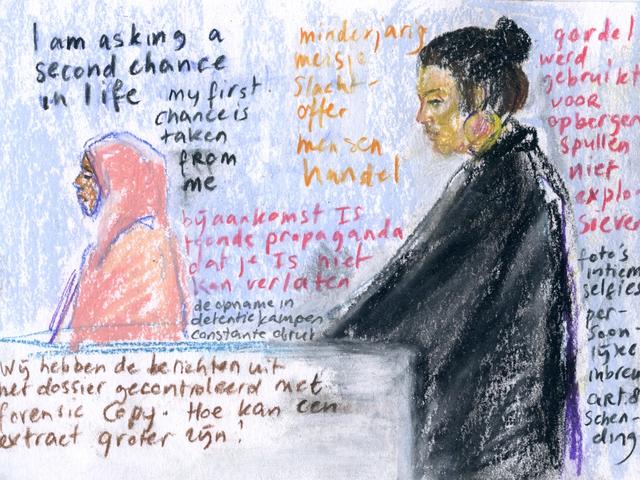 I am asking a
second chance
in life
my first
chance is
taken
from
me
minderjarig
meisje
slacht-
offer
mensen
handel
gordel
werd
gebruikt
voor
opbergen
spullen
niet
explo
sieven
bij aankomst Is
toonde propaganda
dat je Is niet
kan verlaten
de opname in
detentie kampen
constante
foto's
intiem
selfies
per-
soon
lijke
inbreu
art.8
schen-
ding
Wij hebben de berichten uit
het dossier gecontroleerd met
forensic Copy. Hoe kan een
extract groter zijn!